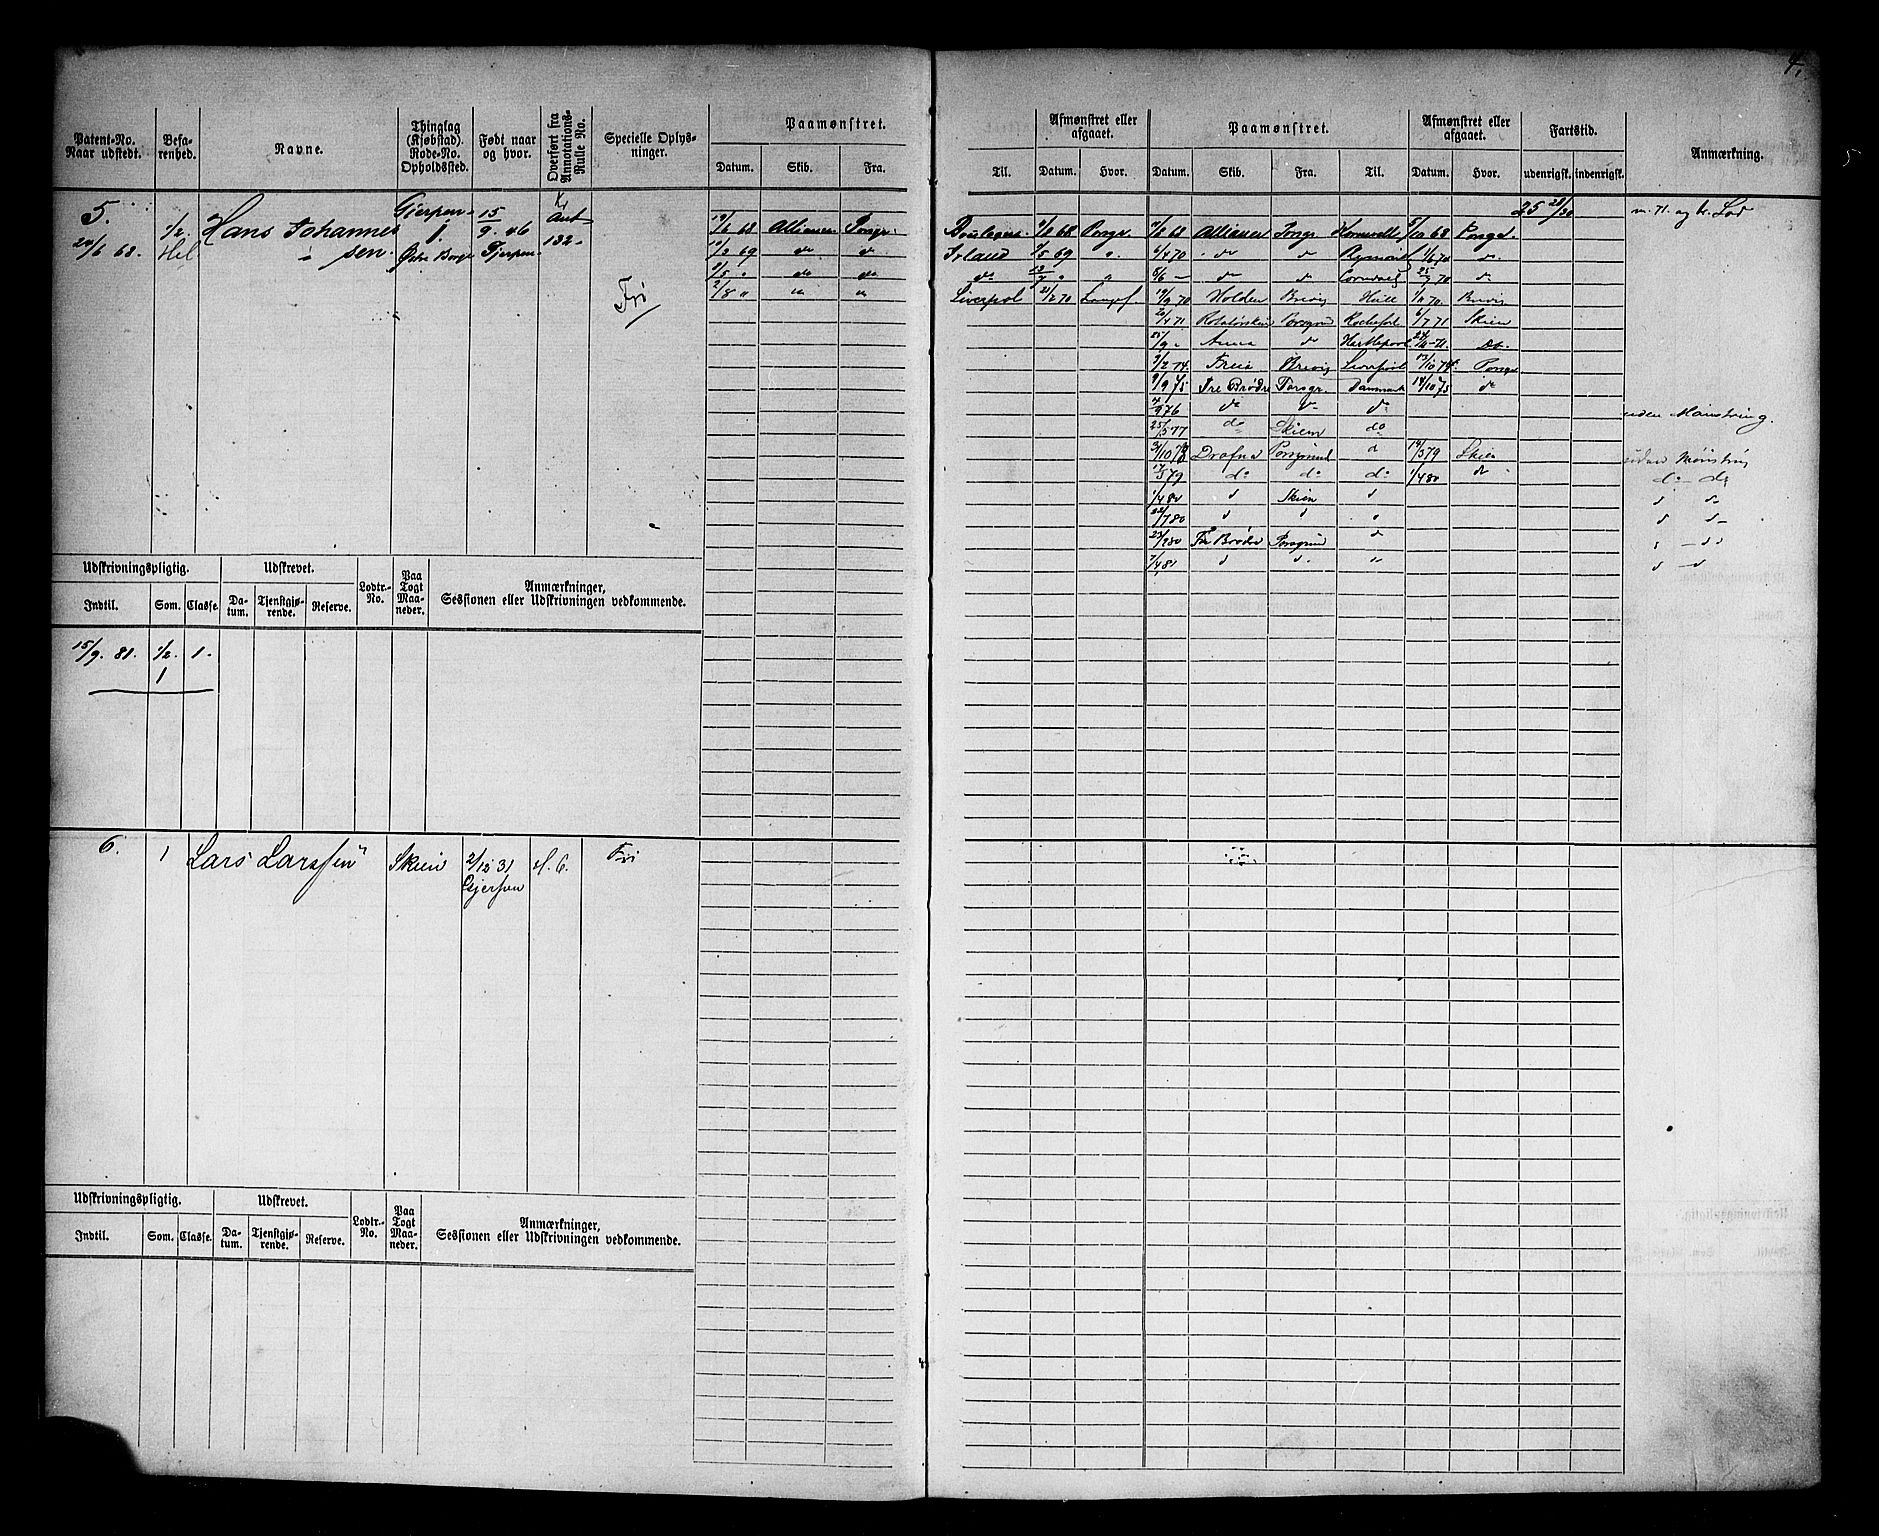 4.
5
Patent-No. Naar udstedt.
Befarenhed.
Navne.
Thinglag (Kjøbstad). Rode-No. Opholdssted.
Født naar og hvor.
Overført fra Annotations-Rulle No.
Specielle Oplysninger.
Paamønstret.
Datum. Skib. Fra.
Til.
Afmønstret eller afgaaet.
Datum. Hvor.
Paamønstret.
Datum. Skib. Fra. Til.
Afmønstret eller afgaaet.
Datum. Hvor.
Fartstid.
udenrigsk. indenrigsk.
Anmærkning.
5. 1/2 Hans Johannes Gjerpen 15
24/6 68. Hel sen Østre Borge 9. 46 Gjerpen 132
Fri
19/6 68 Alliance Porsgr.
10/3 69 do do
2/8 "
68 Porsgr. 68 Alliance Porsgr. 5/10 68 Porsgr.
Irland 69 6/4 70 do d 1/6 70 do
do do d 25/9 70 do
Liverpol 70 Langs. 19/9 70 Holden Brevig Hull 70. Brevig
71 Porsgrund Rochefort 6/7 71 Skien
Anna do Hartlepool 71. Do.
3/2 74 Freia Brevig Liverpool 13/10 74 Porsgr
9/9 75 Tre Brødre Porsgr. Danmark 14/10 75 do
976 do do do
25/5 77 do Skien do
31/10 78 Drafna Porsgrund d 14/3 79 Skien
17/5 79 do do do 1/4 80 do
1/4 80 d Skien d
22/7 80 d d d
23/9 80 Tre Brødre Porsgrund do
7/4 81 d d "
25 28/30
m. 71. og tr. Lod
uden Mønstring.
uden Mønstring
do do
d do
d d
do
d d
Udskrivningspligtig.
Udskrevet.
Lodtr.-No.
Paa Togt Maaneder.
Anmærkninger, Sessionen eller Udskrivningen vedkommende.
Indtil. Som. Classe. Datum. Tjenstgjørende. Reserve.
15/9. 81. 1/2. 1.
1
6. 1 Lars Larssen Skien 2/12 31 H. 6. Fri
Gjerpen
Udskrivningspligtig.
Udskrevet.
Lodtr.-No.
Paa Togt Maaneder.
Anmærkninger, Sessionen eller Udskrivningen vedkommende.
Indtil. Som. Classe. Datum. Tjenstgjørende. Reserve.